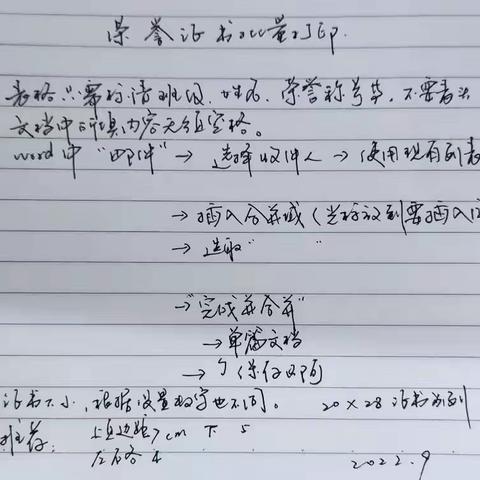 荣誉证书批量打印.
表格只需标清班级、姓名、荣誉称号等,不要表头
文档中所填内容无须空格。
word中"邮件"→选择收件人→使用现有列表
→插入合并域(光标放到需插入
→选取" "
→"完成并合并"
→单篇文档
→
证书大小,根据设置数字也不同。 20×28证书为例
推荐: 上页边距7cm 下5
左右各4
2022.9